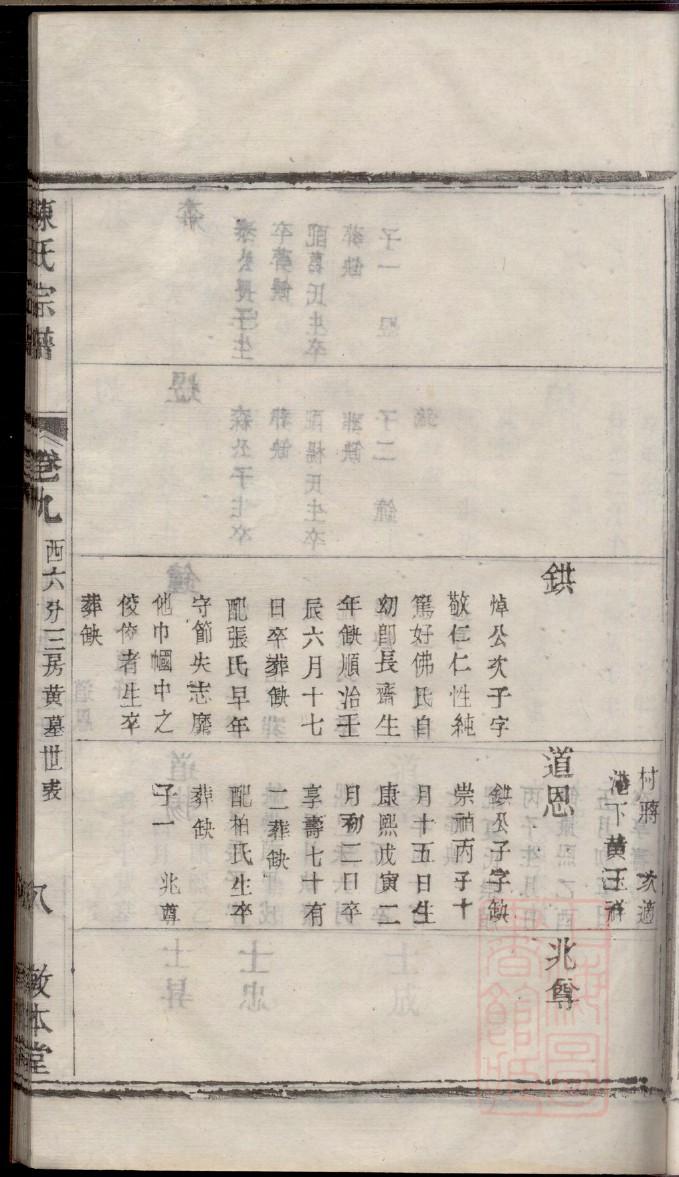 村蔣　次適
港下黃玉祥
鉷
焯公次子字
敬仁仁性純
篤好佛氏自
幼卽長齋生
年缺順治壬
辰六月十七
日卒葬缺
配張氏早年
守節失志靡
他巾幗中之
俊傑者生卒
葬缺
道恩
鉷公子字缺
崇禎丙子十
月十五日生
康熙戊寅二
月初二日卒
享壽七十有
二葬缺
配柏氏生卒
葬缺
子一　兆尊
兆尊
陳氏宗譜
卷九　西六分三房黃墓世表　八　敦本堂